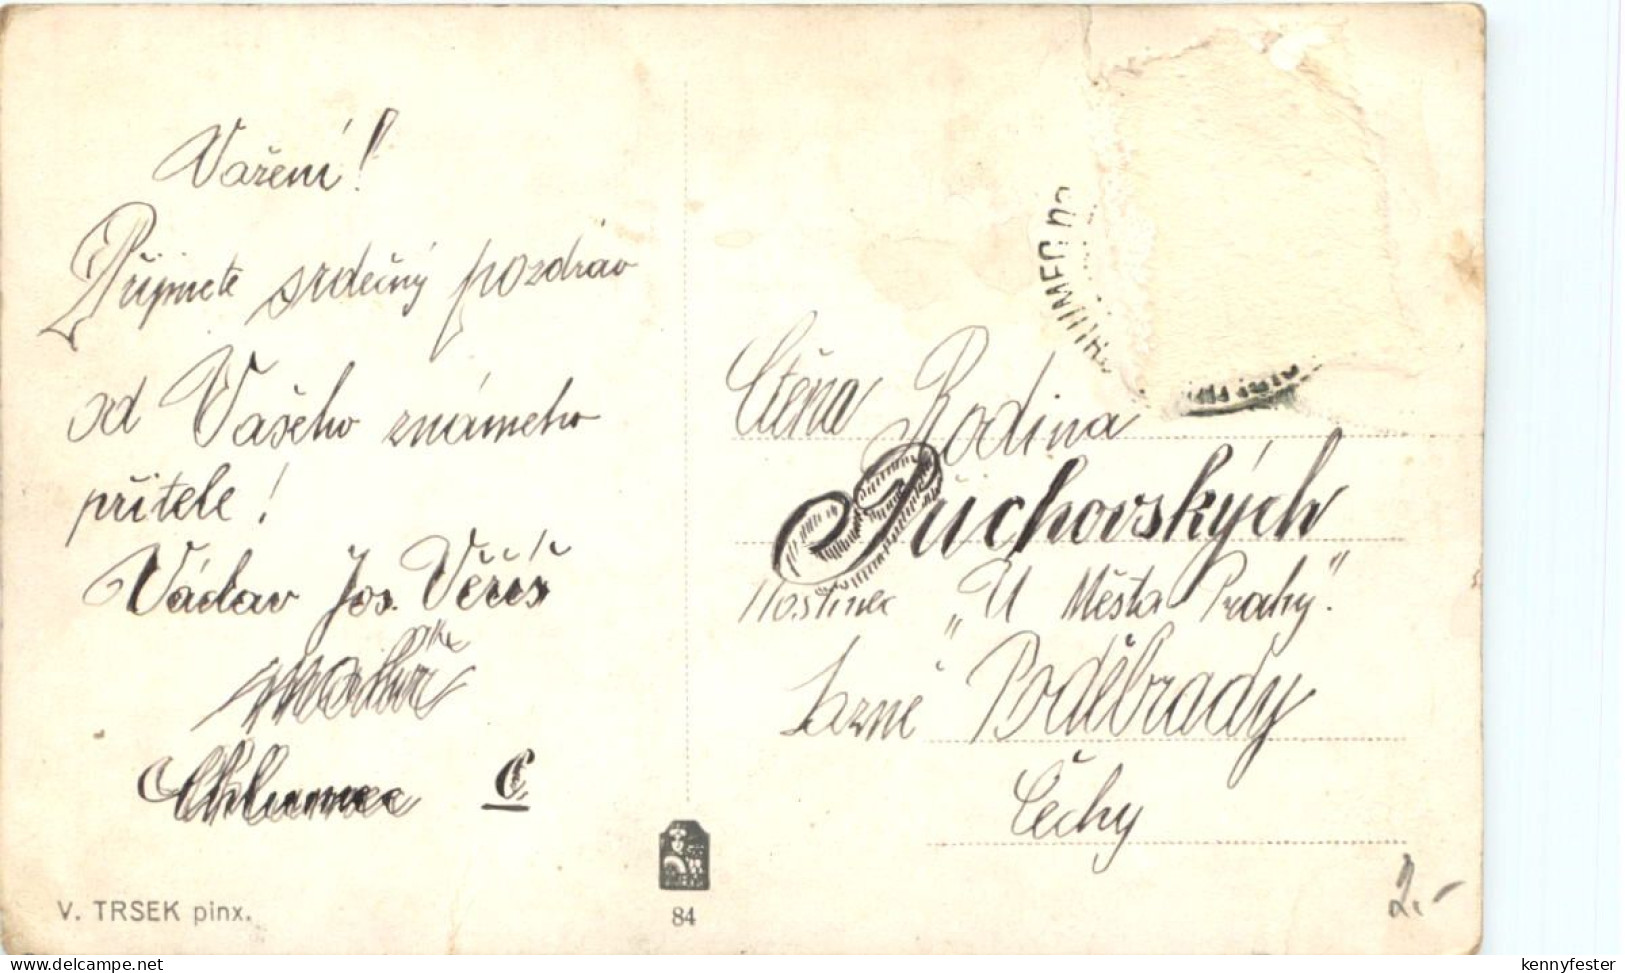 Vážení!
Přijmete srdečný pozdrav
od Vašeho známeho
přítele!
Václav Jos. Věříš
malíř
Chlumec C.
V. TRSEK pinx.
84
Ctěna Rodina
Půchovských
Hostinec „U Města Prahy".
Lázně Poděbrady
Čechy
2.-
delcampe.net
kennyfester